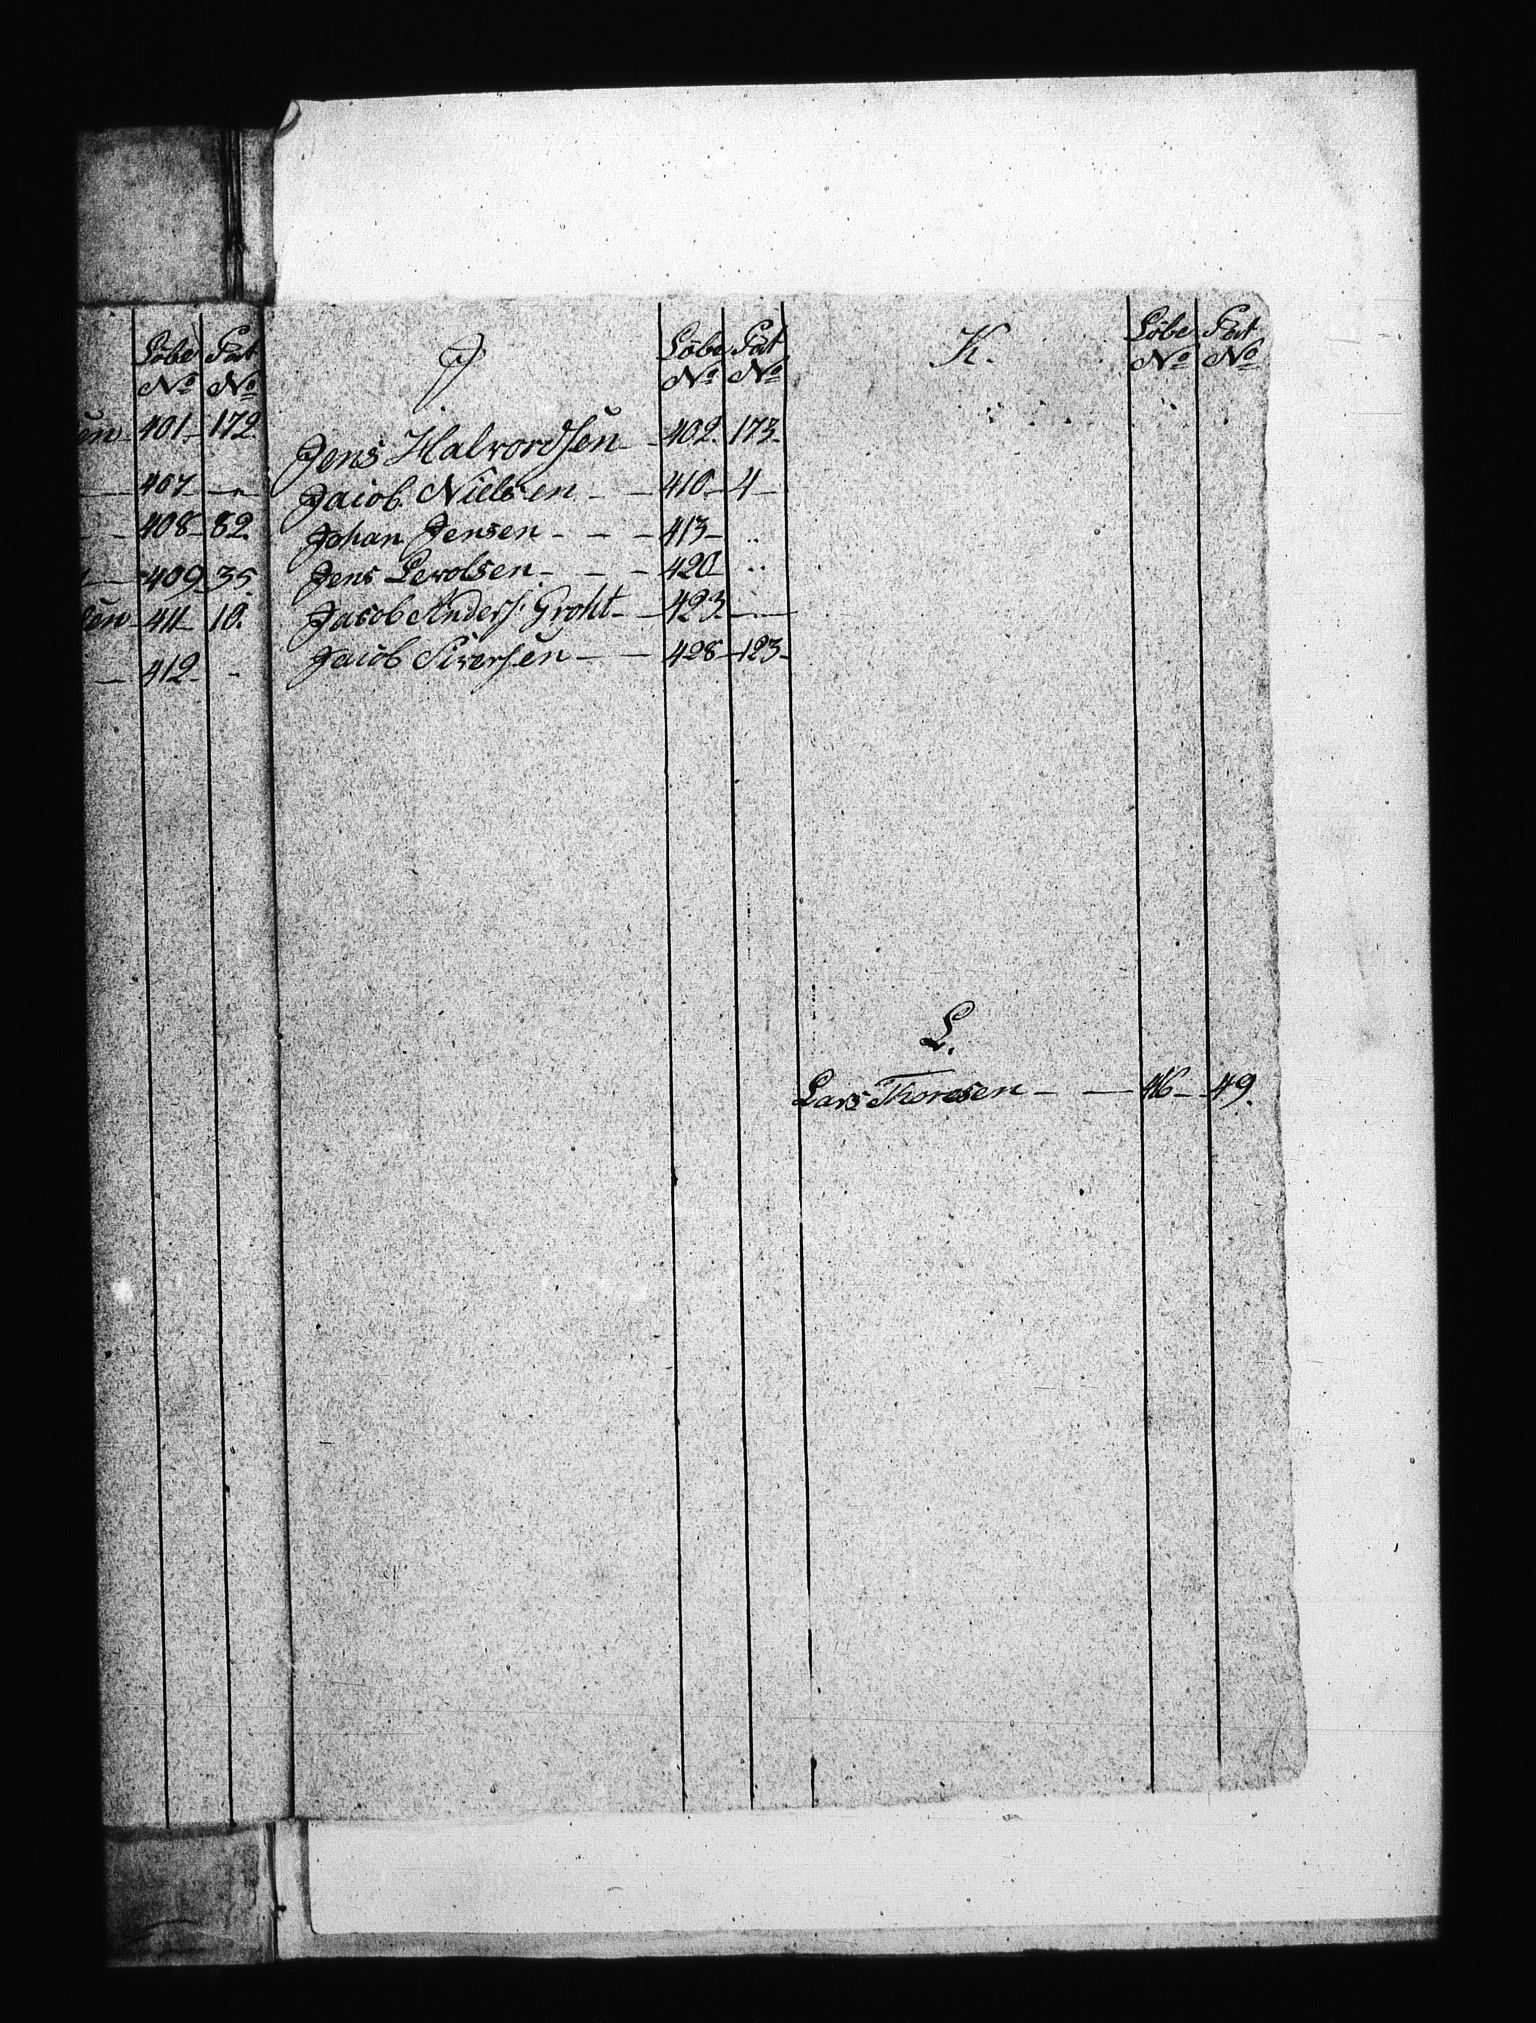 Löbe Pat
No No
en 401 172.
407 -
408 82.
409 35.
sen 411 10.
412 -
J Löbe Pat
No No
Jens Halvordsen 402. 173.
Jacob Nielsen 410 4
Johan Jensen 413 ..
Jens 420 ..
Jacob Anders: Groht 423. -
Jacob Siversen 428 123
K. Löbe Pat
No No
L.
Lars Thoresen 416 49.